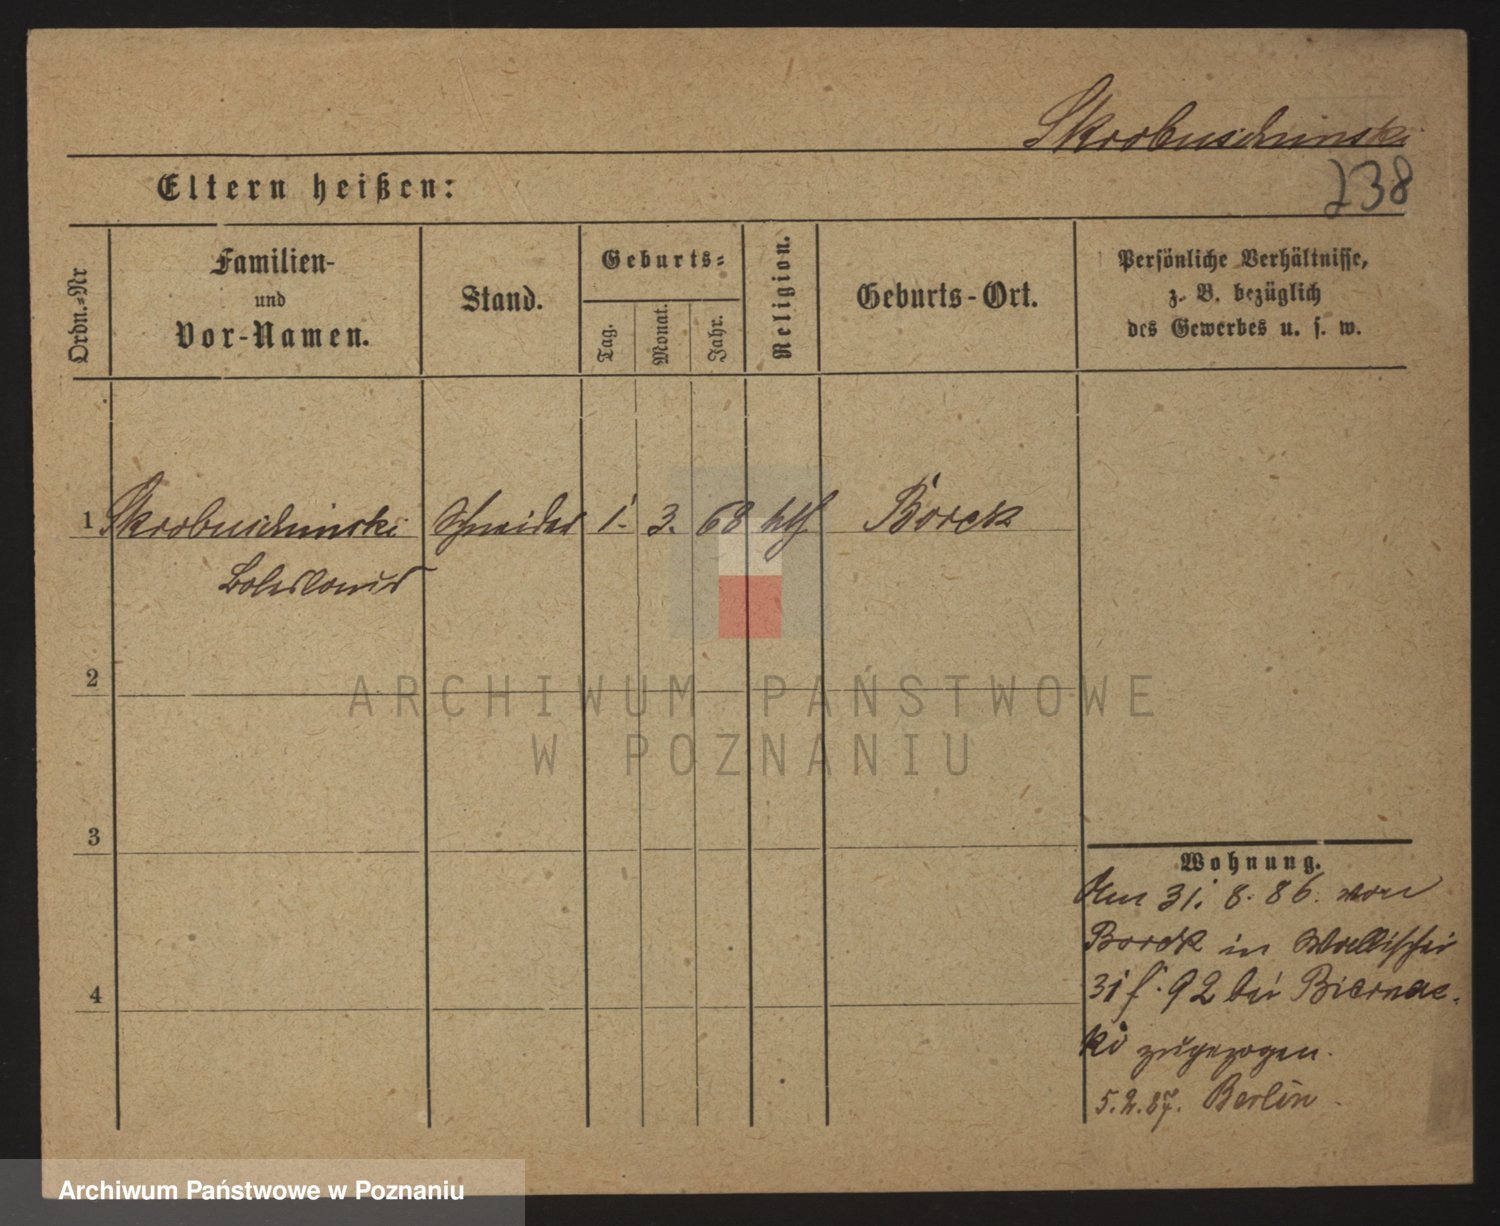 Skrobuschinski
Eltern heißen:
238
Ordn.=Nr
Familien-
und
Vor-Namen.
Stand.
Geburts=
Tag.
Monat.
Jahr.
Religion.
Geburts-Ort.
Persönliche Verhältnisse,
z. B. bezüglich
des Gewerbes u. s. w.
1 Skrobuschinski Schneider 1. 3. 68 kth Borek
Boleslaus
2
3
4
Wohnung.
Am 31. 8. 86. von
Borek in Wallischei
92 bei Biernac-
ki zugezogen.
5.2.87. Berlin.
ARCHIWUM PAŃSTWOWE
W POZNANIU
Archiwum Państwowe w Poznaniu